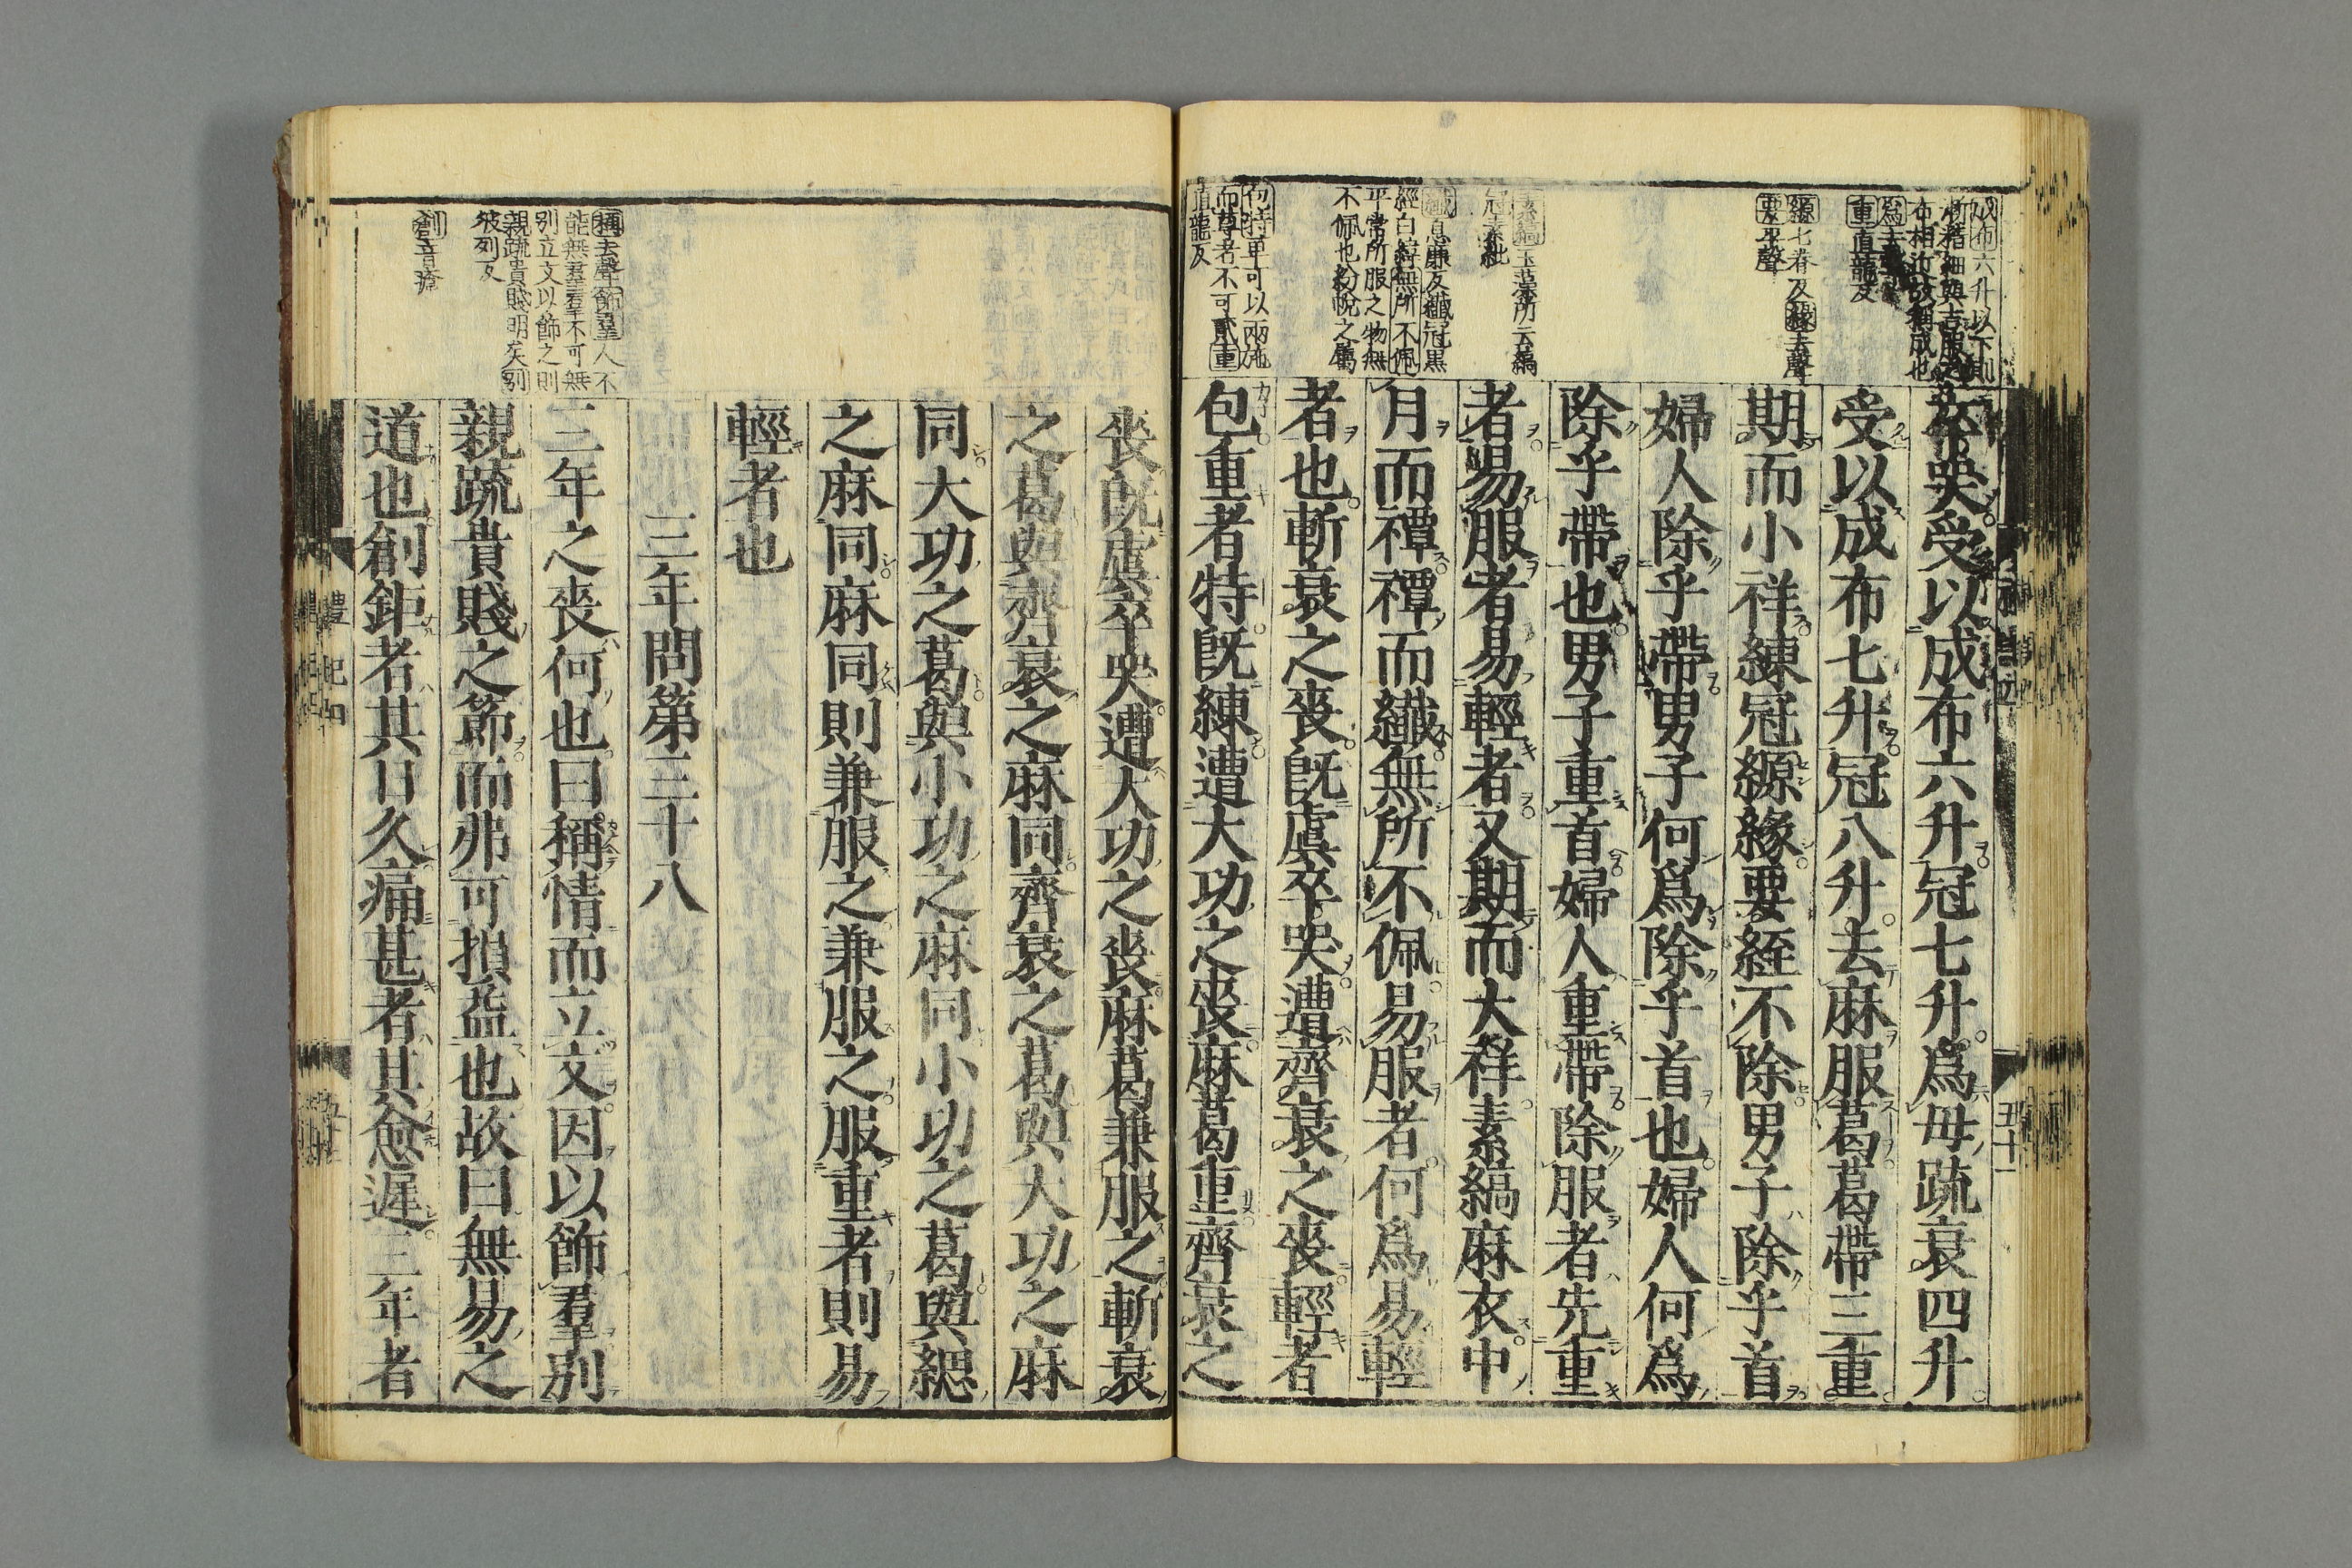 成布六升以下則
漸稍細與吉服之
布相近故稱成也
爲去聲
重直龍反
縓七眷反緣去聲
要平聲
素縞玉藻所云縞
冠素紕
纖息廉反纖冠黑
經白緯無所不佩
平常所服之物無
不佩也紛帨之屬
包特卑可以兩施
而尊者不可貳重
直龍反
卒哭受以成布六升冠七升爲母疏衰四升
受以成布七升冠八升去麻服葛葛帶三重
期而小祥練冠縓緣要絰不除男子除乎首
婦人除乎帶男子何爲除乎首也婦人何爲
除乎帶也男子重首婦人重帶除服者先重
者易服者易輕者又期而大祥素縞麻衣中
月而禫禫而纖無所不佩易服者何爲易輕
者也斬衰之喪既虞卒哭遭齊衰之喪輕者
包重者特既練遭大功之喪麻葛重齊衰之
五十一
喪既虞卒哭遭大功之喪麻葛兼服之斬衰
之葛與齊衰之麻同齊衰之葛與大功之麻
同大功之葛與小功之麻同小功之葛與緦
之麻同麻同則兼服之兼服之服重者則易
輕者也
三年問第三十八
三年之喪何也曰稱情而立文因以飾羣別
親疏貴賤之節而弗可損益也故曰無易之
道也創鉅者其日久痛甚者其愈遲三年者
稱去聲飾羣人不
能無羣羣不可無
別立文以飾之則
親疏貴賤明矣別
彼列反
創音瘡
禮記四